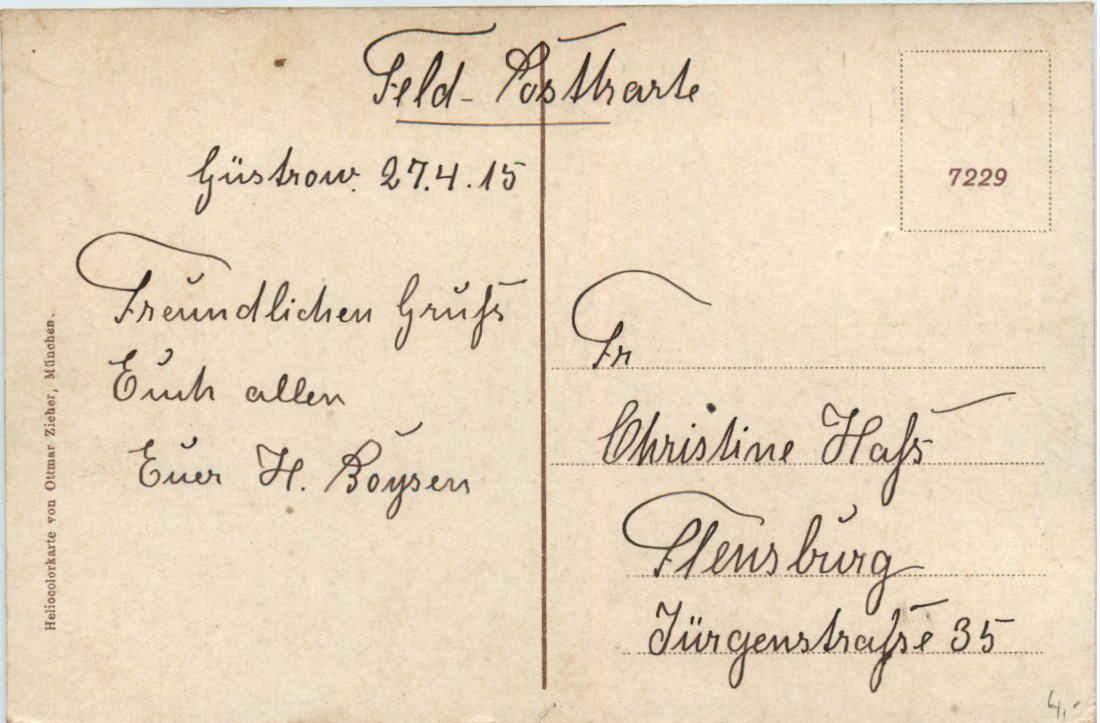 Feld-Postkarte
7229
Güstrow. 27.4.15
Freundlichen Gruß
Euch allen
Euer H. Boysen
Fr
Christine Haß
Flensburg
Jürgenstraße 35
Heliocolorkarte von Ottmar Zieher, München.
4,-